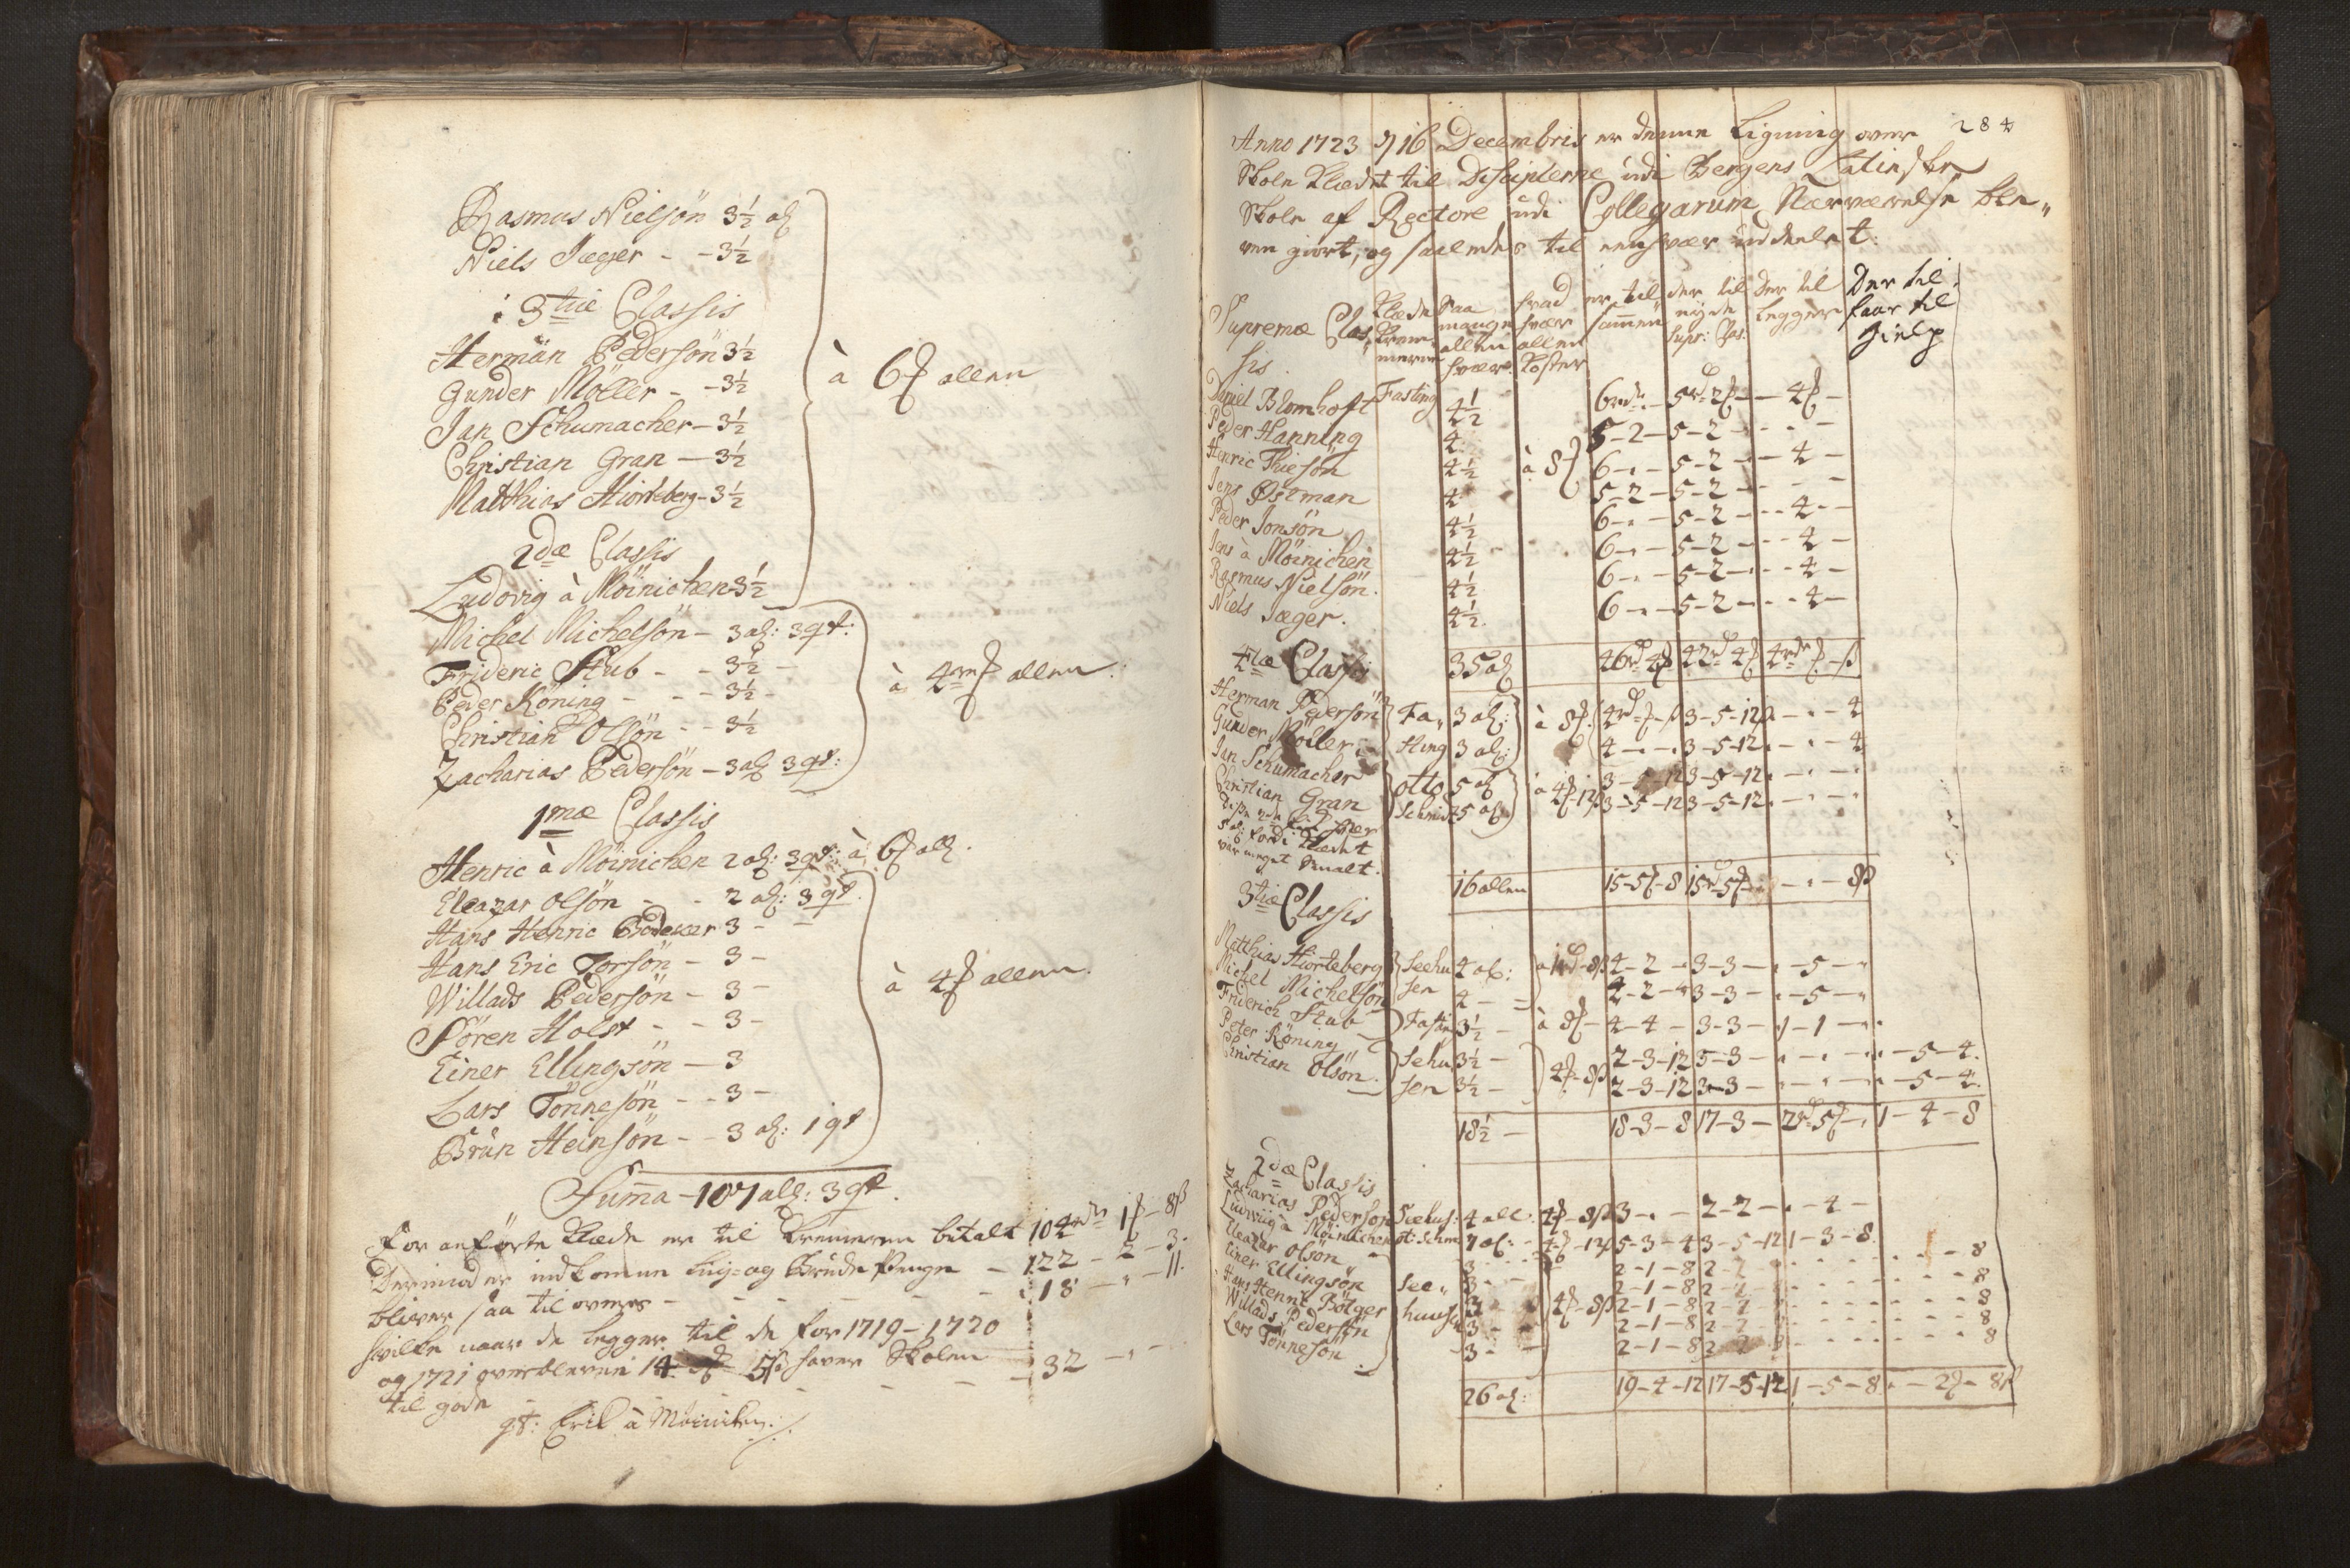 Rasmus Nielsön 3½ al
Niels Jæger - - 3½
i 3tiæ Classis
Herman Pedersön 3½
Gunder Möller - - 3½
Jan Schumacher - 3½
Christian Gran - 3½
Matthias Hiorteberg - 3½
à 6 allen
2dæ Classis
Ludovig à Möinichen 3½
Michel Michelsön - 3 al: 3 qt:
Frideric Stub - - 3½ -
Peder Köning - - - 3½ -
Christian Olsön - - 3½
Zacharias Pedersön - 3 al 3 qt:
à 4 allen.
1mæ Classis
Henric à Möinichen 2 al: 3 qt: à 6 all.
Eleazar Olsön - - 2 al: 3 qt.
Hans Henric Bödeker 3 - -
Hans Eric Torsön - 3 -
Willads Pedersön - 3 -
Sören Holst - - 3 -
Einer Ellingsön - 3
Lars Tönnesön - - 3 -
Brün Heinsön - - 3 al: 1 qt
à 4 allen.
Summa - 107 al: 3 qt.
For anförte Klæde er til Kremmeren betalt 104 rdr 1 - 8 ß
Derimod er indkommen Liig- og Brude Penge - 122 - 2 - 3.
bliver saa til overs - - - - - 18 - " - 11.
hvilke naar de legges til de for 1719 - 1720
og 1721 overblevne 14 5 ß haver Skolen
til gode - - - - - 32 - " -
Erik à Möinichen
284
Anno 1723 d 16 Decembris er denne Ligning over
Skole Klædet til Disciplerne udi Bergens Latinske
Skole af Rectore udi Collegarum Nærværelse ble-
ven giort, og saaledes til enhver uddeelet:
Supremæ Clas- Klæde Saa hvad er til der til Der til Der til
sis. Krem- mange hver sammen nyde legger faar til
meren allen allen Supr: Clas: Hielp
hver. Koster
Daniel Blomhoft Fasting 4½ 6 rdr - 5 rd 2 - - 4 -
Peder Hanning 4 5 - 2 - 5 - 2 - - -
Henric Thiesön 4½ à 8 6 - " - 5 - 2 - - 4 -
Jens Östman 4 5 - 2 - 5 - 2 - - -
Peder Jonsön 4½ 6 - " - 5 - 2 - - 4 -
Jens à Möinichen 4½ 6 - " - 5 - 2 - - 4 -
Rasmus Nielsön. 4½ 6 - " - 5 - 2 - - 4 -
Niels Jæger. 4½ 6 - " - 5 - 2 - - 4 -
35 al 46 rd 4 42 rd 4 4 rdr - ß
4tæ Classis
Herman Pedersön Fa- 3 al: à 8 4 rd - - ß 3 - 5 - 12 ß - " - 4
Gunder Möller sting 3 al: 4 - " - " 3 - 5 - 12 " - " - 4
Jan Schumacher Otto 5 al à 4 - 12 ß 3 - 5 - 12 3 - 5 - 12 " - " - "
Christian Gran Schmidt 5 al 3 - 5 - 12 3 - 5 - 12 " - " - "
5 al: fordi Klædet
var meget smalt.
16 allen 15 - 5 - 8 15 rd 5 - " - 8 ß
3tiæ Classis
Matthias Hiorteberg Seehu 4 al: à 1 rd - 8 ß 4 - 2 - " 3 - 3 - " - 5 - "
Michel Michelsön sen 4 - - 4 - 2 - " 3 - 3 - " - 5 - "
Friderich Stub Fasting 3½ - à 8 - 4 - 4 - 3 - 3 - 1 - 1 - "
Peter Köning Sehu 3½ - 4 - 8 ß 2 - 3 - 12 3 - 3 - " - " - " - 5 - 4.
Christian Olsön. sen 3½ - 2 - 3 - 12 3 - 3 - " - " - " - 5 - 4.
18½ - 18 - 3 - 8 17 - 3 - 2 rd 5 - " 1 - 4 - 8
2dæ Classis
Zacharias Pedersön Seehus: 4 all: 4 - 8 ß 3 - " - 2 - 2 - " - 4 -
Ludvig à Möinichen ot: Schm 7 al: 4 - 12 ß 5 - 3 - 4 3 - 5 - 12 1 - 3 - 8
Eleazar Olsön 3 - - 2 - 1 - 8 2 - 2 - - - 8
Einer Ellingsön See- 3 - - 2 - 1 - 8 2 - 2 - - - 8
Hans Henric Bötger husen 3 - - 4 - 8 ß 2 - 1 - 8 2 - 2 - - - 8
Willads Pedersön 3 - - 2 - 1 - 8 2 - 2 - - - 8
Lars Tönnesön 3 - - 2 - 1 - 8 2 - 2 - - - 8
26 al: 19 - 4 - 12 17 - 5 - 12 1 - 5 - 8 " - 2 - 8 ß